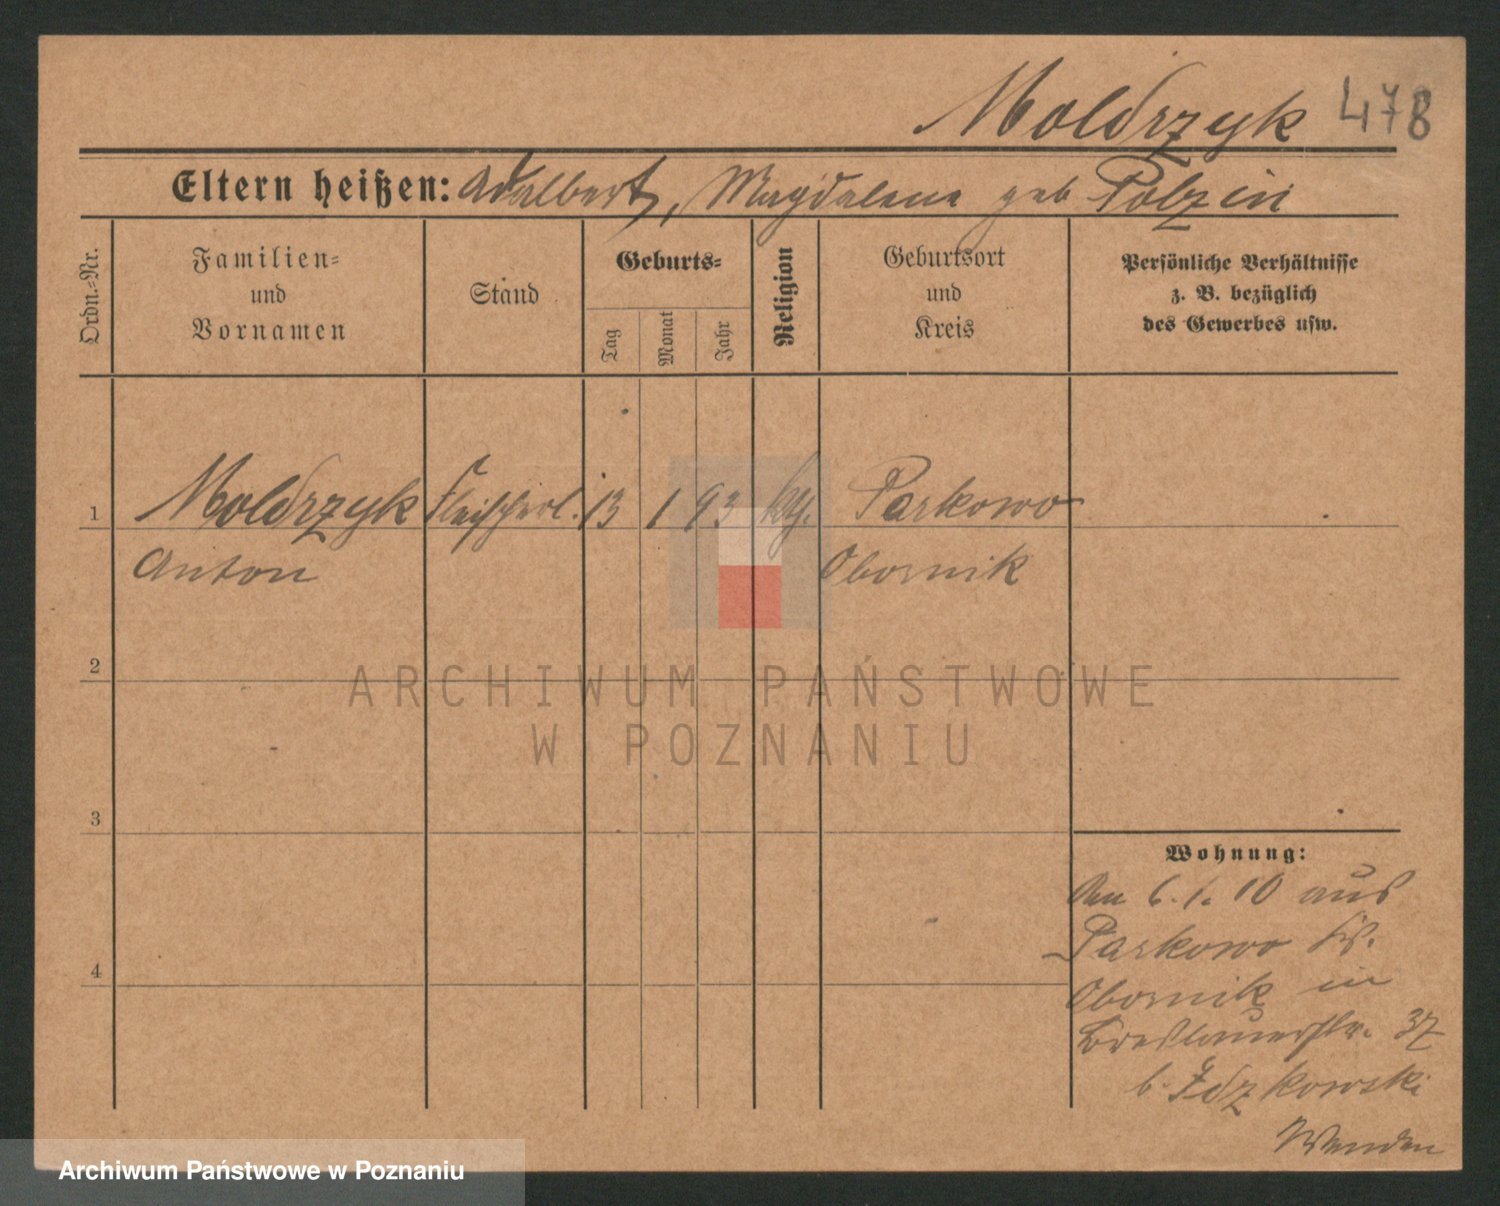 Moldrzyk 478
Eltern heißen: Adalbert, Magdalena geb Polzin
Ordn.-Nr.
Familien-
und
Vornamen
Stand
Geburts-
Tag
Monat
Jahr
Religion
Geburtsort
und
Kreis
Persönliche Verhältnisse
z. B. bezüglich
des Gewerbes usw.
1 Moldrzyk Fleischerl. 13 1 93 Parkowo
Anton Obornik
2
3
4
Wohnung:
6. 1. 10 aus
Parkowo
Obornik in
Breslauerstr. 37
b. Idzkowski
Wenden
ARCHIWUM PAŃSTWOWE
W POZNANIU
Archiwum Państwowe w Poznaniu